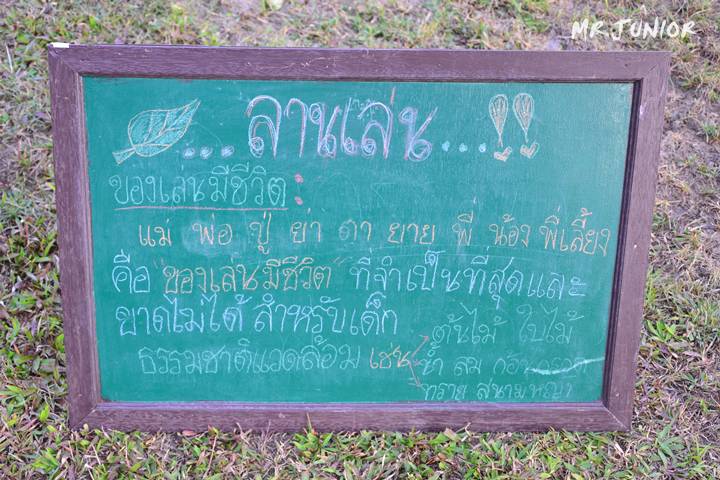 MR.JUNIOR
...ลานเล่น...!!
ของเล่นมีชีวิต :
แม่ พ่อ ปู่ ย่า ตา ยาย พี่ น้อง พี่เลี้ยง
คือ "ของเล่นมีชีวิต" ที่จำเป็นที่สุดและ
ขาดไม่ได้ สำหรับเด็ก
ต้นไม้ ใบไม้
ธรรมชาติแวดล้อม เช่น น้ำ ลม ก้อนกรวด
ทราย สนามหญ้า